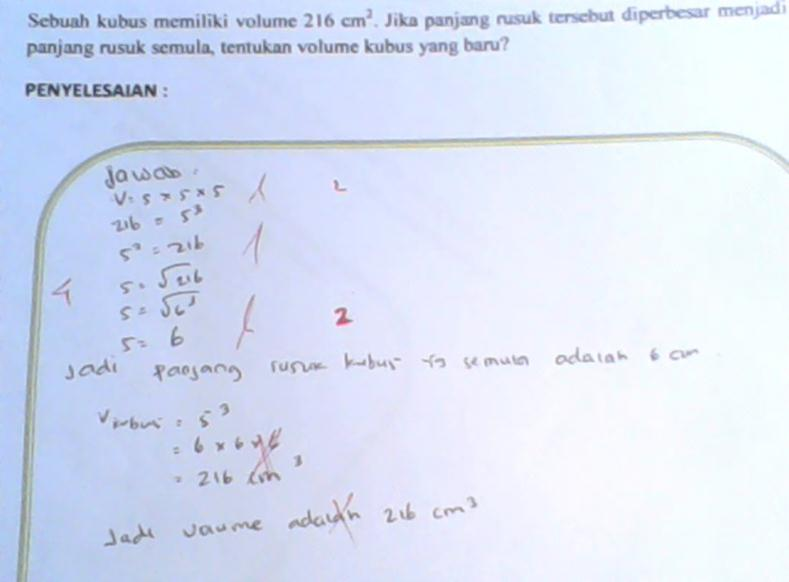 Sebuah kubus memiliki volume 216 cm³. Jika panjang rusuk tersebut diperbesar menjadi
panjang rusuk semula, tentukan volume kubus yang baru?
PENYELESAIAN :
Jawab :
V = s × s × s
2
216 = s³
s³ = 216
4
s = √216
s = √6³
2
s = 6
Jadi panjang rusuk kubus yg semula adalah 6 cm
V kubus = s³
= 6 × 6 × 6
= 216 cm³
Jadi volume adalah 216 cm³